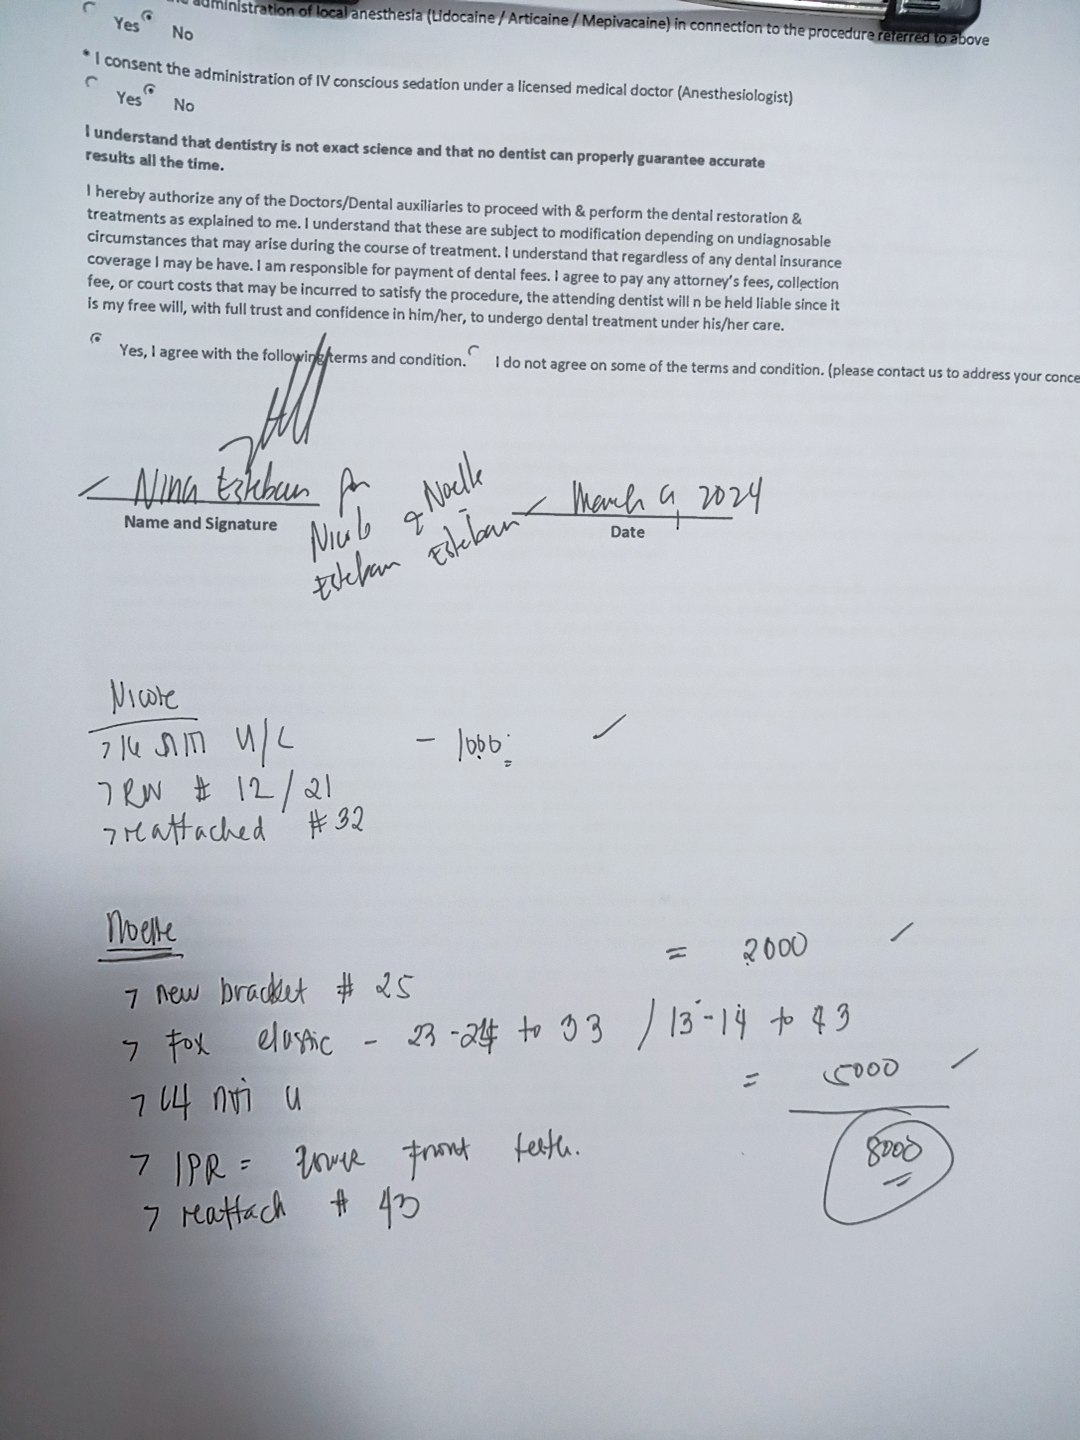 administration of local anesthesia (Lidocaine / Articaine / Mepivacaine) in connection to the procedure referred to above
Yes No
* I consent the administration of IV conscious sedation under a licensed medical doctor (Anesthesiologist)
Yes No
I understand that dentistry is not exact science and that no dentist can properly guarantee accurate
results all the time.
I hereby authorize any of the Doctors/Dental auxiliaries to proceed with & perform the dental restoration &
treatments as explained to me. I understand that these are subject to modification depending on undiagnosable
circumstances that may arise during the course of treatment. I understand that regardless of any dental insurance
coverage I may be have. I am responsible for payment of dental fees. I agree to pay any attorney's fees, collection
fee, or court costs that may be incurred to satisfy the procedure, the attending dentist will n be held liable since it
is my free will, with full trust and confidence in him/her, to undergo dental treatment under his/her care.
Yes, I agree with the following terms and condition. I do not agree on some of the terms and condition. (please contact us to address your conce
Nina Esteban for March 9, 2024
Name and Signature Date
Nicole & Noelle
Esteban Esteban
Nicole
U/L - 1000
RW # 12/21
reattached #32
Noelle
= 2000
new bracket # 25
Fox elastic - 23-24 to 33 / 13-14 to 43
= 5000
U
IPR = lower front teeth.
8000
reattach # 43